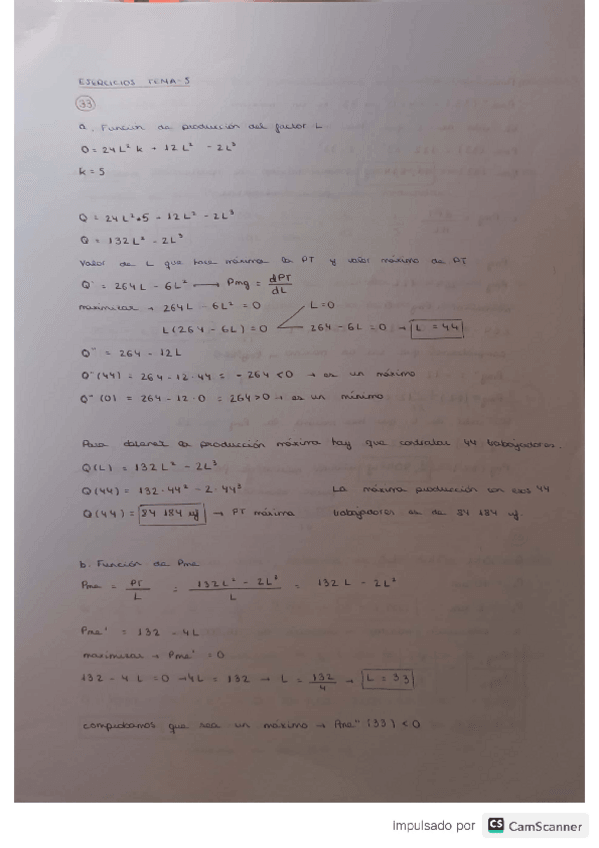 EJERCICIOS TEMA-5
33
a. Función de producción del factor L
Q = 24L² k + 12L² - 2L³
k = 5
Q = 24L²·5 - 12L² - 2L³
Q = 132L² - 2L³
Valor de L que hace máxima la PT y valor máximo de PT
Q' = 264L - 6L² → Pmg = dPT/dL
maximizar → 264L - 6L² = 0 L=0
L(264 - 6L) = 0 264 - 6L = 0 → L = 44
Q'' = 264 - 12L
Q''(44) = 264 - 12·44 = -264 < 0 → es un máximo
Q''(0) = 264 - 12·0 = 264 > 0 → es un mínimo
Para obtener la producción máxima hay que contratar 44 trabajadores.
Q(L) = 132L² - 2L³
Q(44) = 132·44² - 2·44³ La máxima producción con esos 44
Q(44) = 84 184 uf → PT máxima trabajadores es de 84 184 uf.
b. Función de Pme
Pme = PT/L = 132L² - 2L³/L = 132L - 2L²
Pme' = 132 - 4L
maximizar → Pme' = 0
132 - 4L = 0 → 4L = 132 → L = 132/4 → L = 33
comprobamos que sea un máximo → Pme''(33) < 0
Impulsado por CS CamScanner